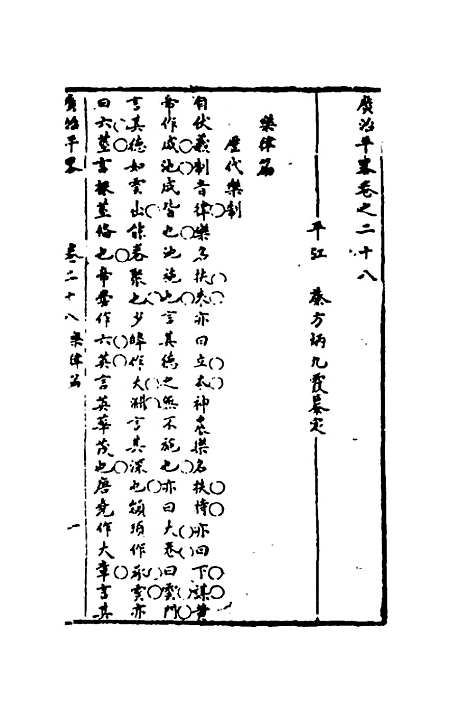 廣治平畧卷之二十八
平江 蔡方炳九霞纂定
樂律篇
歷代樂制
自伏羲制音律樂名扶來亦曰立本神農樂名扶持亦曰下謀黃
帝作咸池咸皆也池施也言其德之無不施也亦曰大卷曰雲門
言其德如雲出能卷聚也少皞作大淵言其深也顓頊作承雲亦
曰六莖言根莖俗也帝嚳作六英言英華茂也唐堯作大章言其
廣治平畧 卷二十八 樂律篇 一